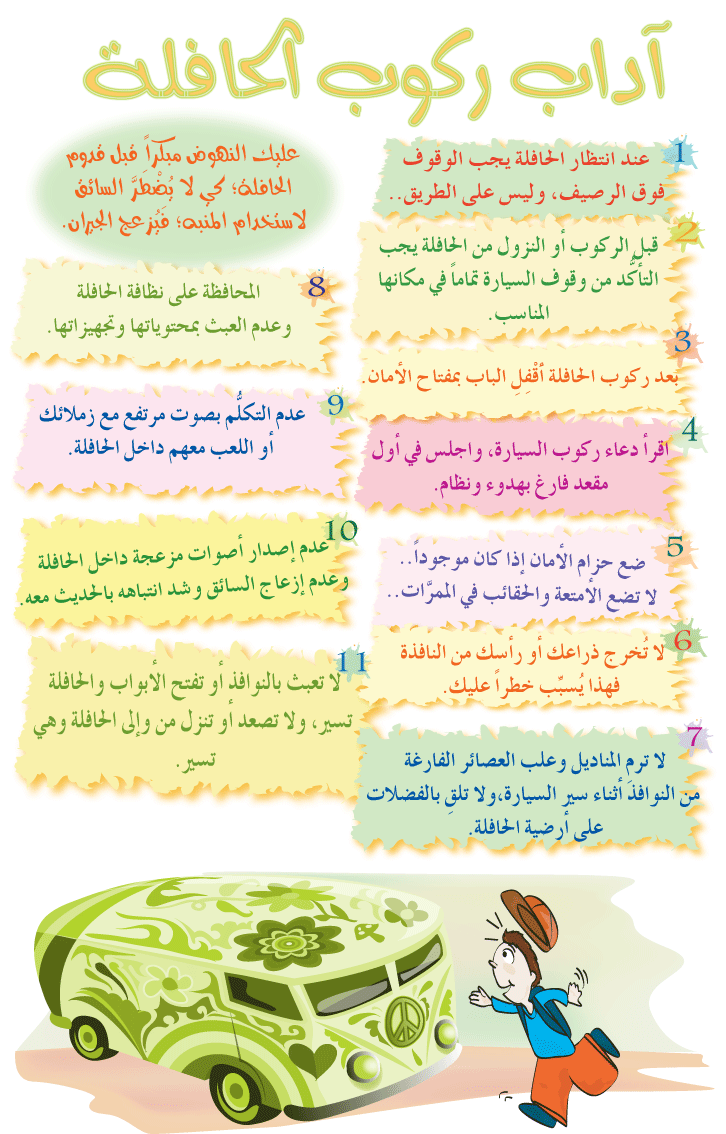 آداب ركوب الحافلة
عليك النهوض مبكراً قبل قدوم
الحافلة؛ كي لا يُضْطَرَّ السائق
لاستخدام المنبه؛ فَيُزعج الجيران.
1
عند انتظار الحافلة يجب الوقوف
فوق الرصيف، وليس على الطريق..
2
قبل الركوب أو النزول من الحافلة يجب
التأكُّد من وقوف السيارة تماماً في مكانها
المناسب.
3
بعد ركوب الحافلة أقْفِلِ الباب بمفتاح الأمان.
4
اقرأ دعاء ركوب السيارة، واجلس في أول
مقعد فارغ بهدوء ونظام.
5
ضع حزام الأمان إذا كان موجوداً..
لا تضع الأمتعة والحقائب في الممرَّات..
6
لا تُخرج ذراعك أو رأسك من النافذة
فهذا يُسبِّب خطراً عليك.
7
لا ترمِ المناديل وعلب العصائر الفارغة
من النوافذ أثناء سير السيارة،ولا تلقِ بالفضلات
على أرضية الحافلة.
8
المحافظة على نظافة الحافلة
وعدم العبث بمحتوياتها وتجهيزاتها.
9
عدم التكلُّم بصوت مرتفع مع زملائك
أو اللعب معهم داخل الحافلة.
10
عدم إصدار أصوات مزعجة داخل الحافلة
وعدم إزعاج السائق وشد انتباهه بالحديث معه.
11
لا تعبث بالنوافذ أو تفتح الأبواب والحافلة
تسير، ولا تصعد أو تنزل من وإلى الحافلة وهي
تسير.